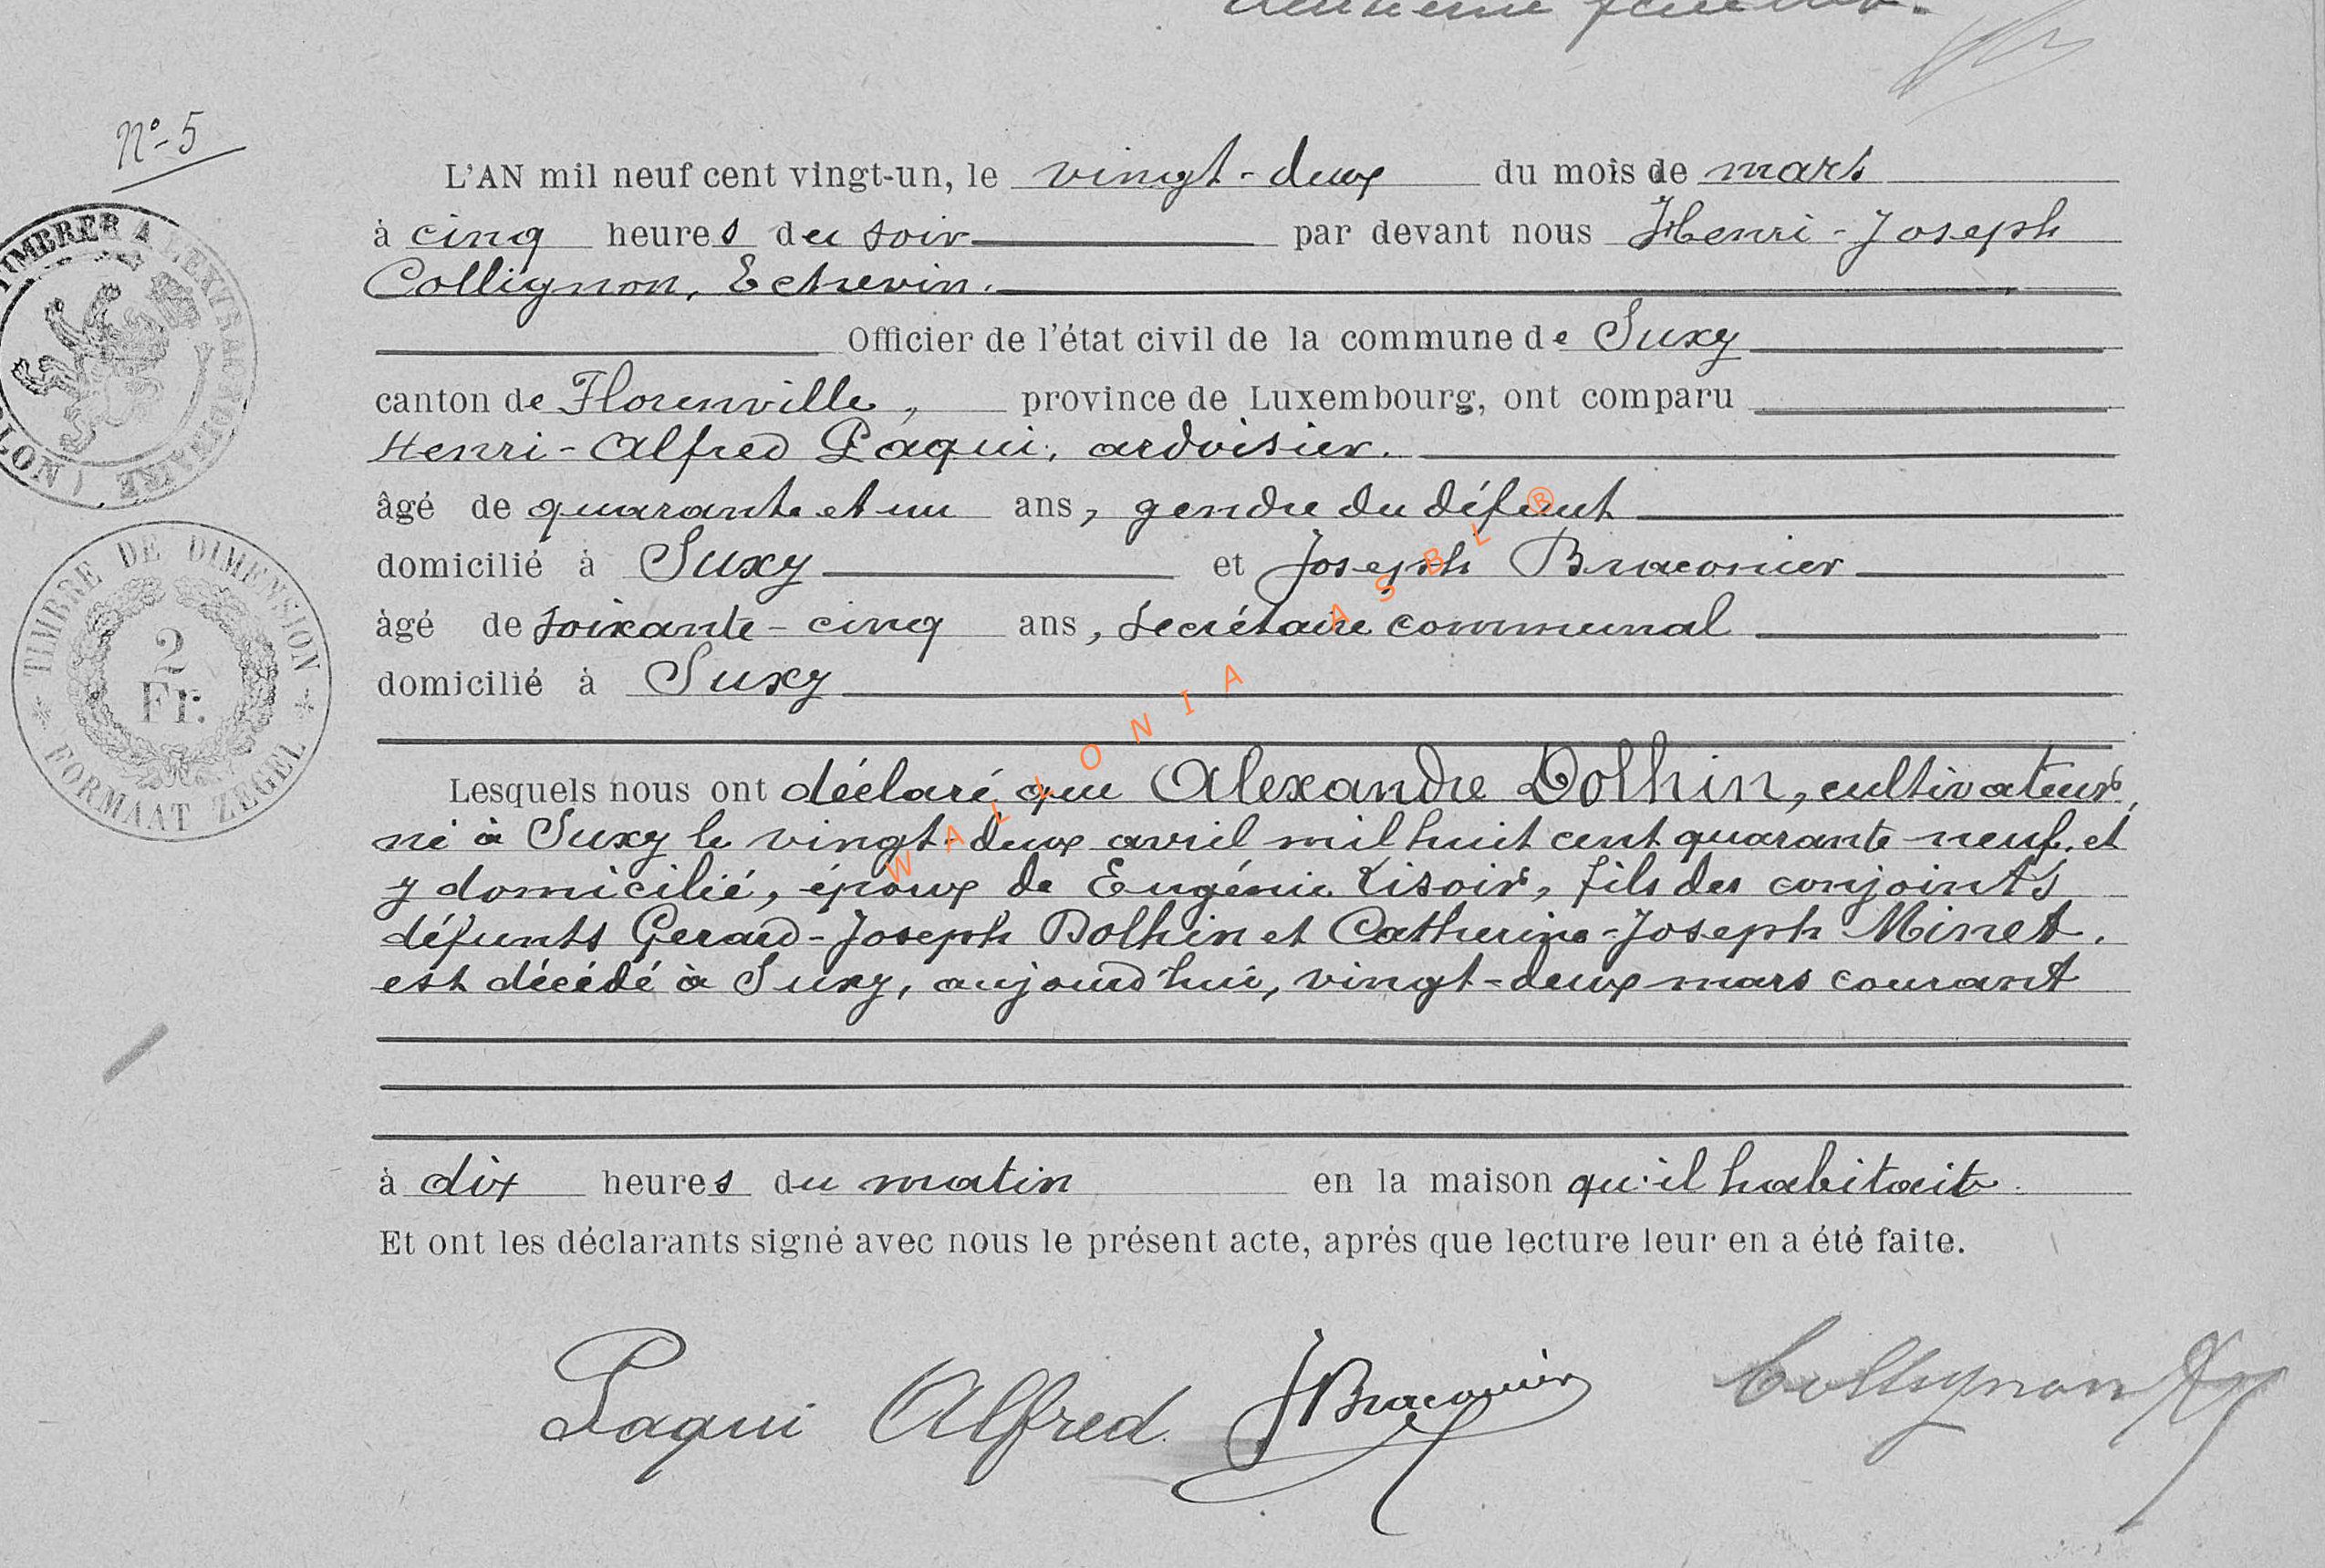 N° 5
L'AN mil neuf cent vingt-un, le vingt-deux du mois de mars
à cinq heures du soir par devant nous Henri-Joseph
Collignon, Echevin.
Officier de l'état civil de la commune de Suxy
canton de Florenville, province de Luxembourg, ont comparu
Henri-Alfred Paqui, ardoisier.
âgé de quarante et un ans, gendre du défunt
domicilié à Suxy et Joseph Braconier
âgé de soixante-cinq ans, secrétaire communal
domicilié à Suxy
Lesquels nous ont déclaré que Alexandre Dolhin, cultivateur,
né à Suxy le vingt-deux avril mil huit cent quarante-neuf, et
y domicilié, époux de Eugénie Lisoir, fils des conjoints
défunts Gerard-Joseph Dolhin et Catherine-Joseph Minet.
est décédé à Suxy, aujourd'hui, vingt-deux mars courant
à dix heures du matin en la maison qu'il habitait.
Et ont les déclarants signé avec nous le présent acte, après que lecture leur en a été faite.
Paqui Alfred. JBraconier Collignon
TIMBRER A L'EXTRAORDINAIRE
TIMBRE DE DIMENSION
2
Fr.
FORMAAT ZEGEL
WALLONIA ASBL ®